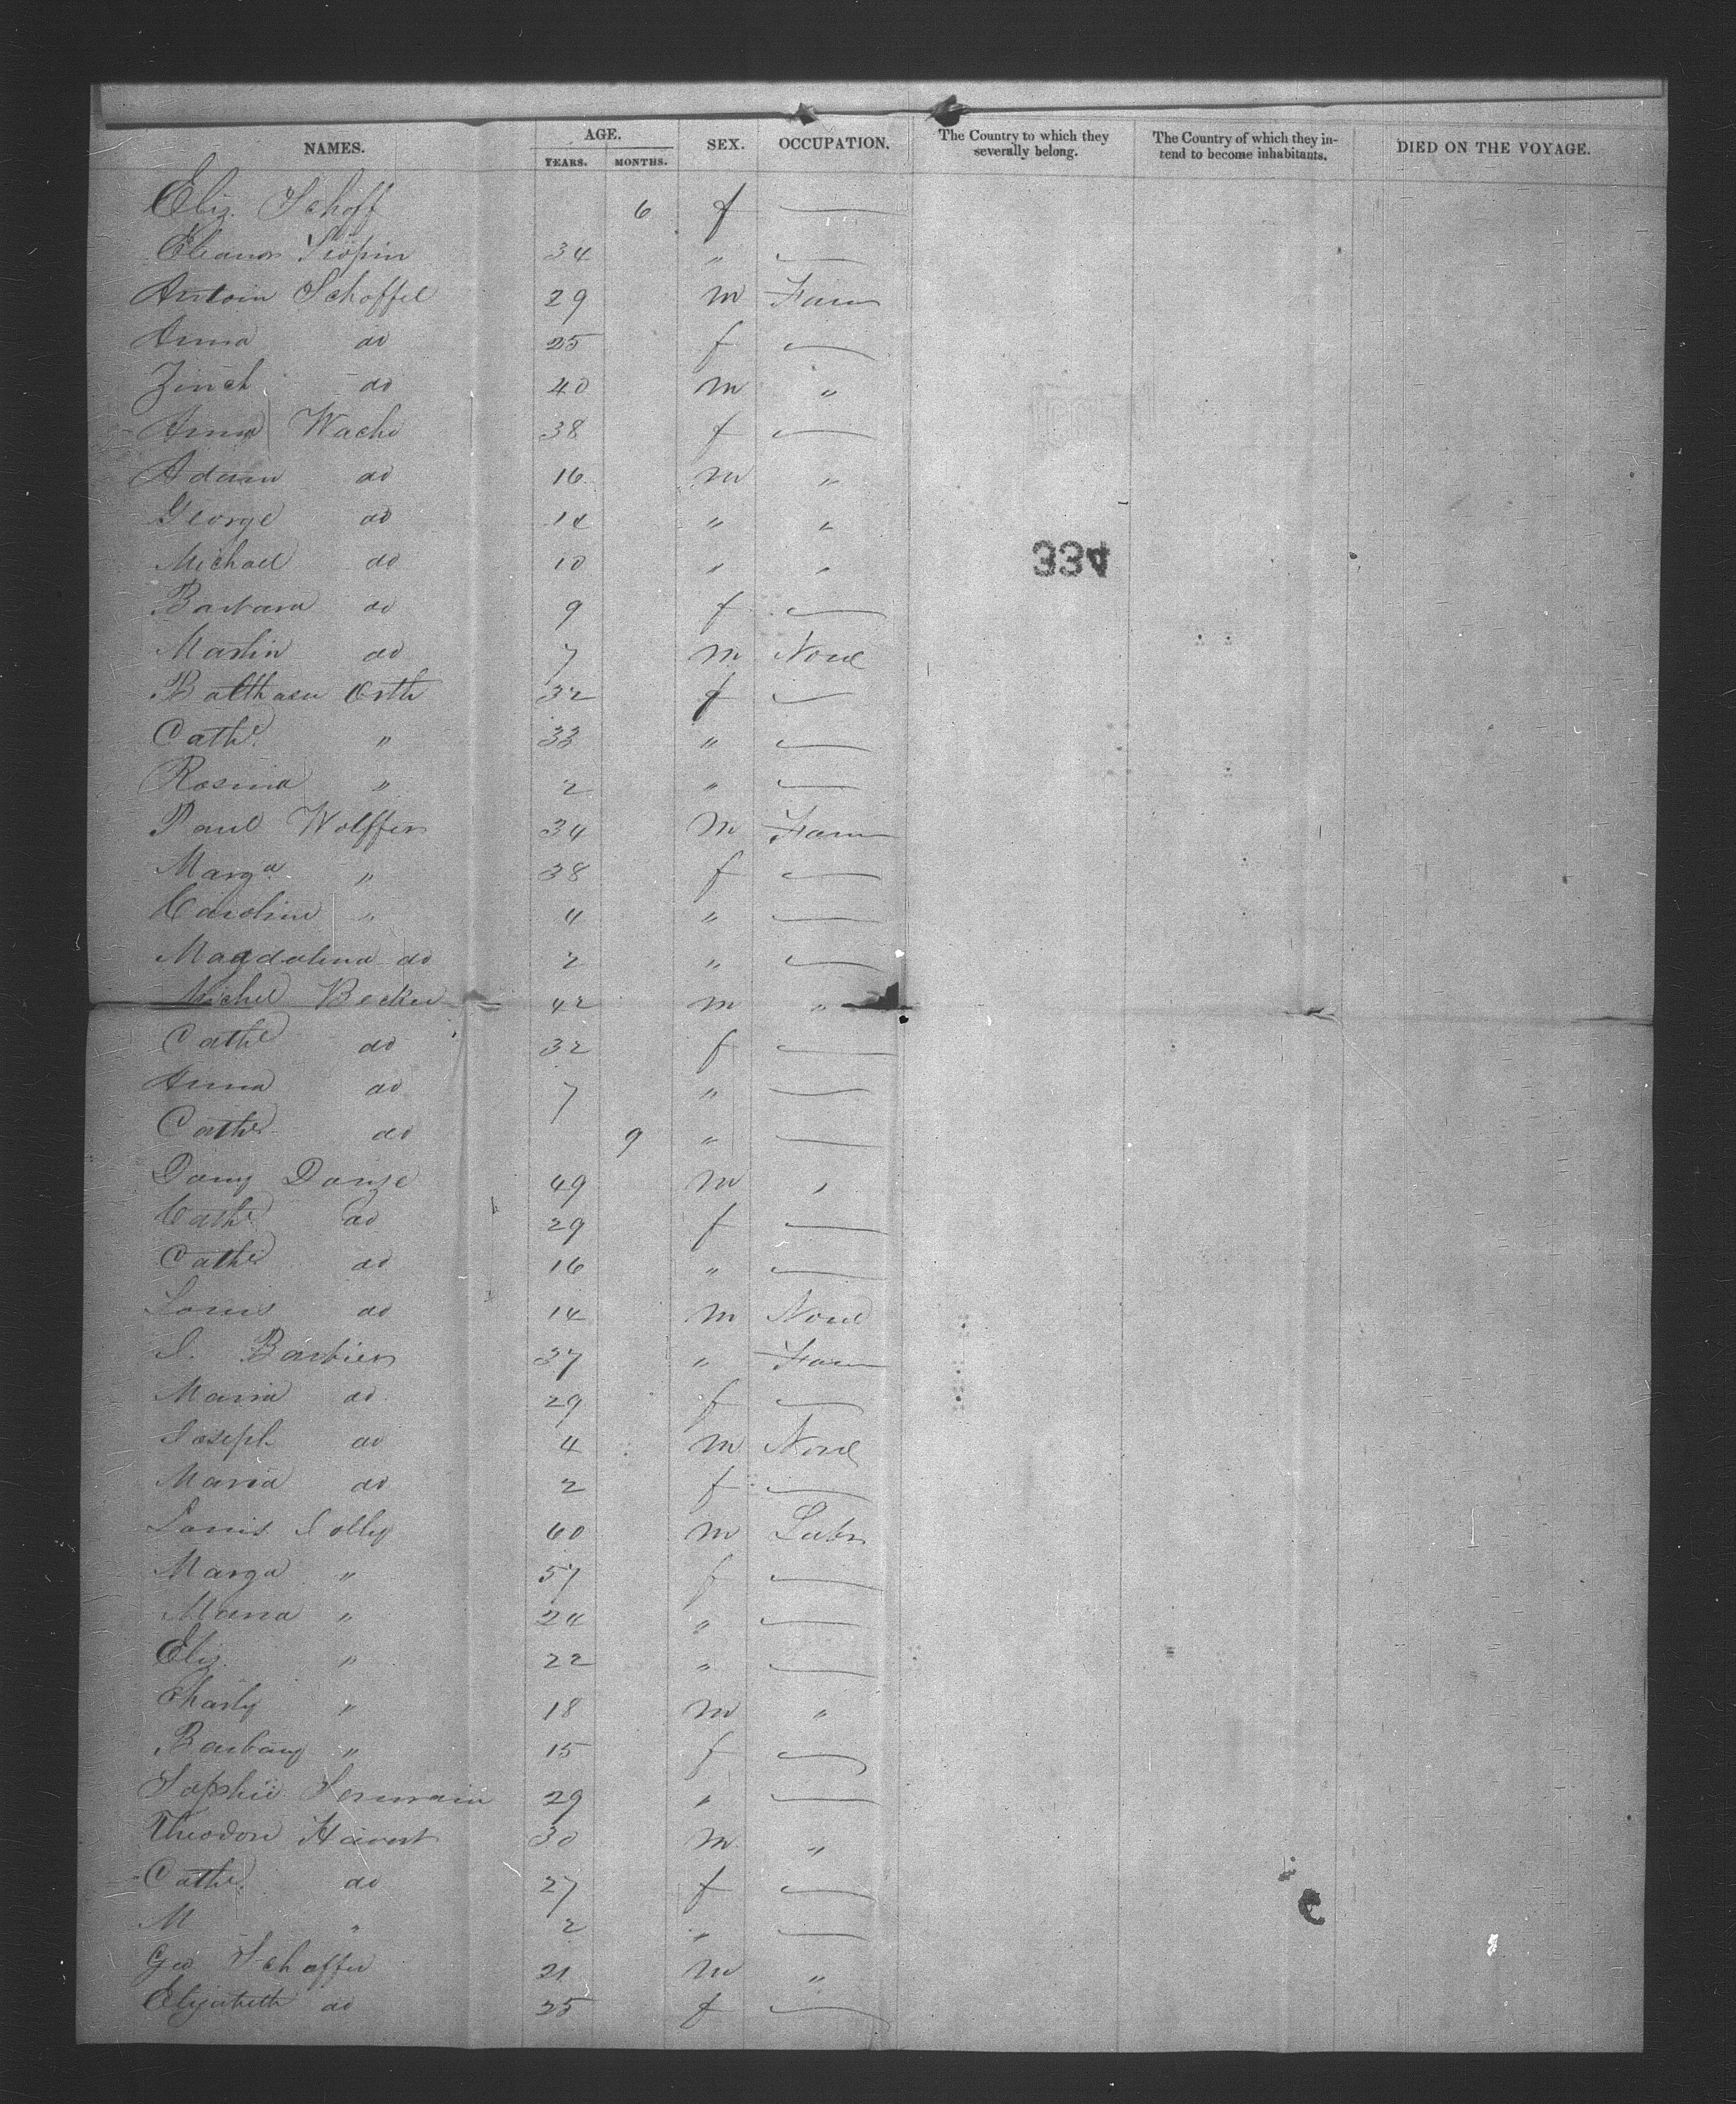 NAMES. AGE. YEARS. MONTHS. SEX. OCCUPATION. The Country to which they severally belong. The Country of which they intend to become inhabitants. DIED ON THE VOYAGE.
Eliz. Schoff 6 f
Eleanor 34 "
Antoin Schoffel 29 m Farm
Anna do 25 f
do 40 m "
Anna Wache 38 f
Adam do 16 m "
George do 14 " "
Michael do 10 " "
334
Barbara do 9 f
Martin do 7 m None
Balthaser Orth 32 f
Cathe " 33 "
Rosina " 2 "
Paul Wolffer 34 m Farm
Marga " 38 f
Caroline " 4 "
Magdalena do 2 "
Michel Becker 42 m "
Cathe do 32 f
Anna do 7 "
Cathe do 9 "
Danze 49 m "
Cathe do 29 f
Cathe do 16 "
Louis do 14 m None
J. Barbier 37 " Farm
Maria do 29 f
Joseph do 4 m None
Maria do 2 f
Louis Jolly 60 m Labr
Marga " 57 f
Maria " 24 "
Eliz. " 22 "
Charly " 18 m "
" 15 f
Sophie Germain 29 "
Theodore 30 m "
Cathe do 27 f
M " 2 "
Geo Schaffer 21 m "
Elizabeth do 25 f